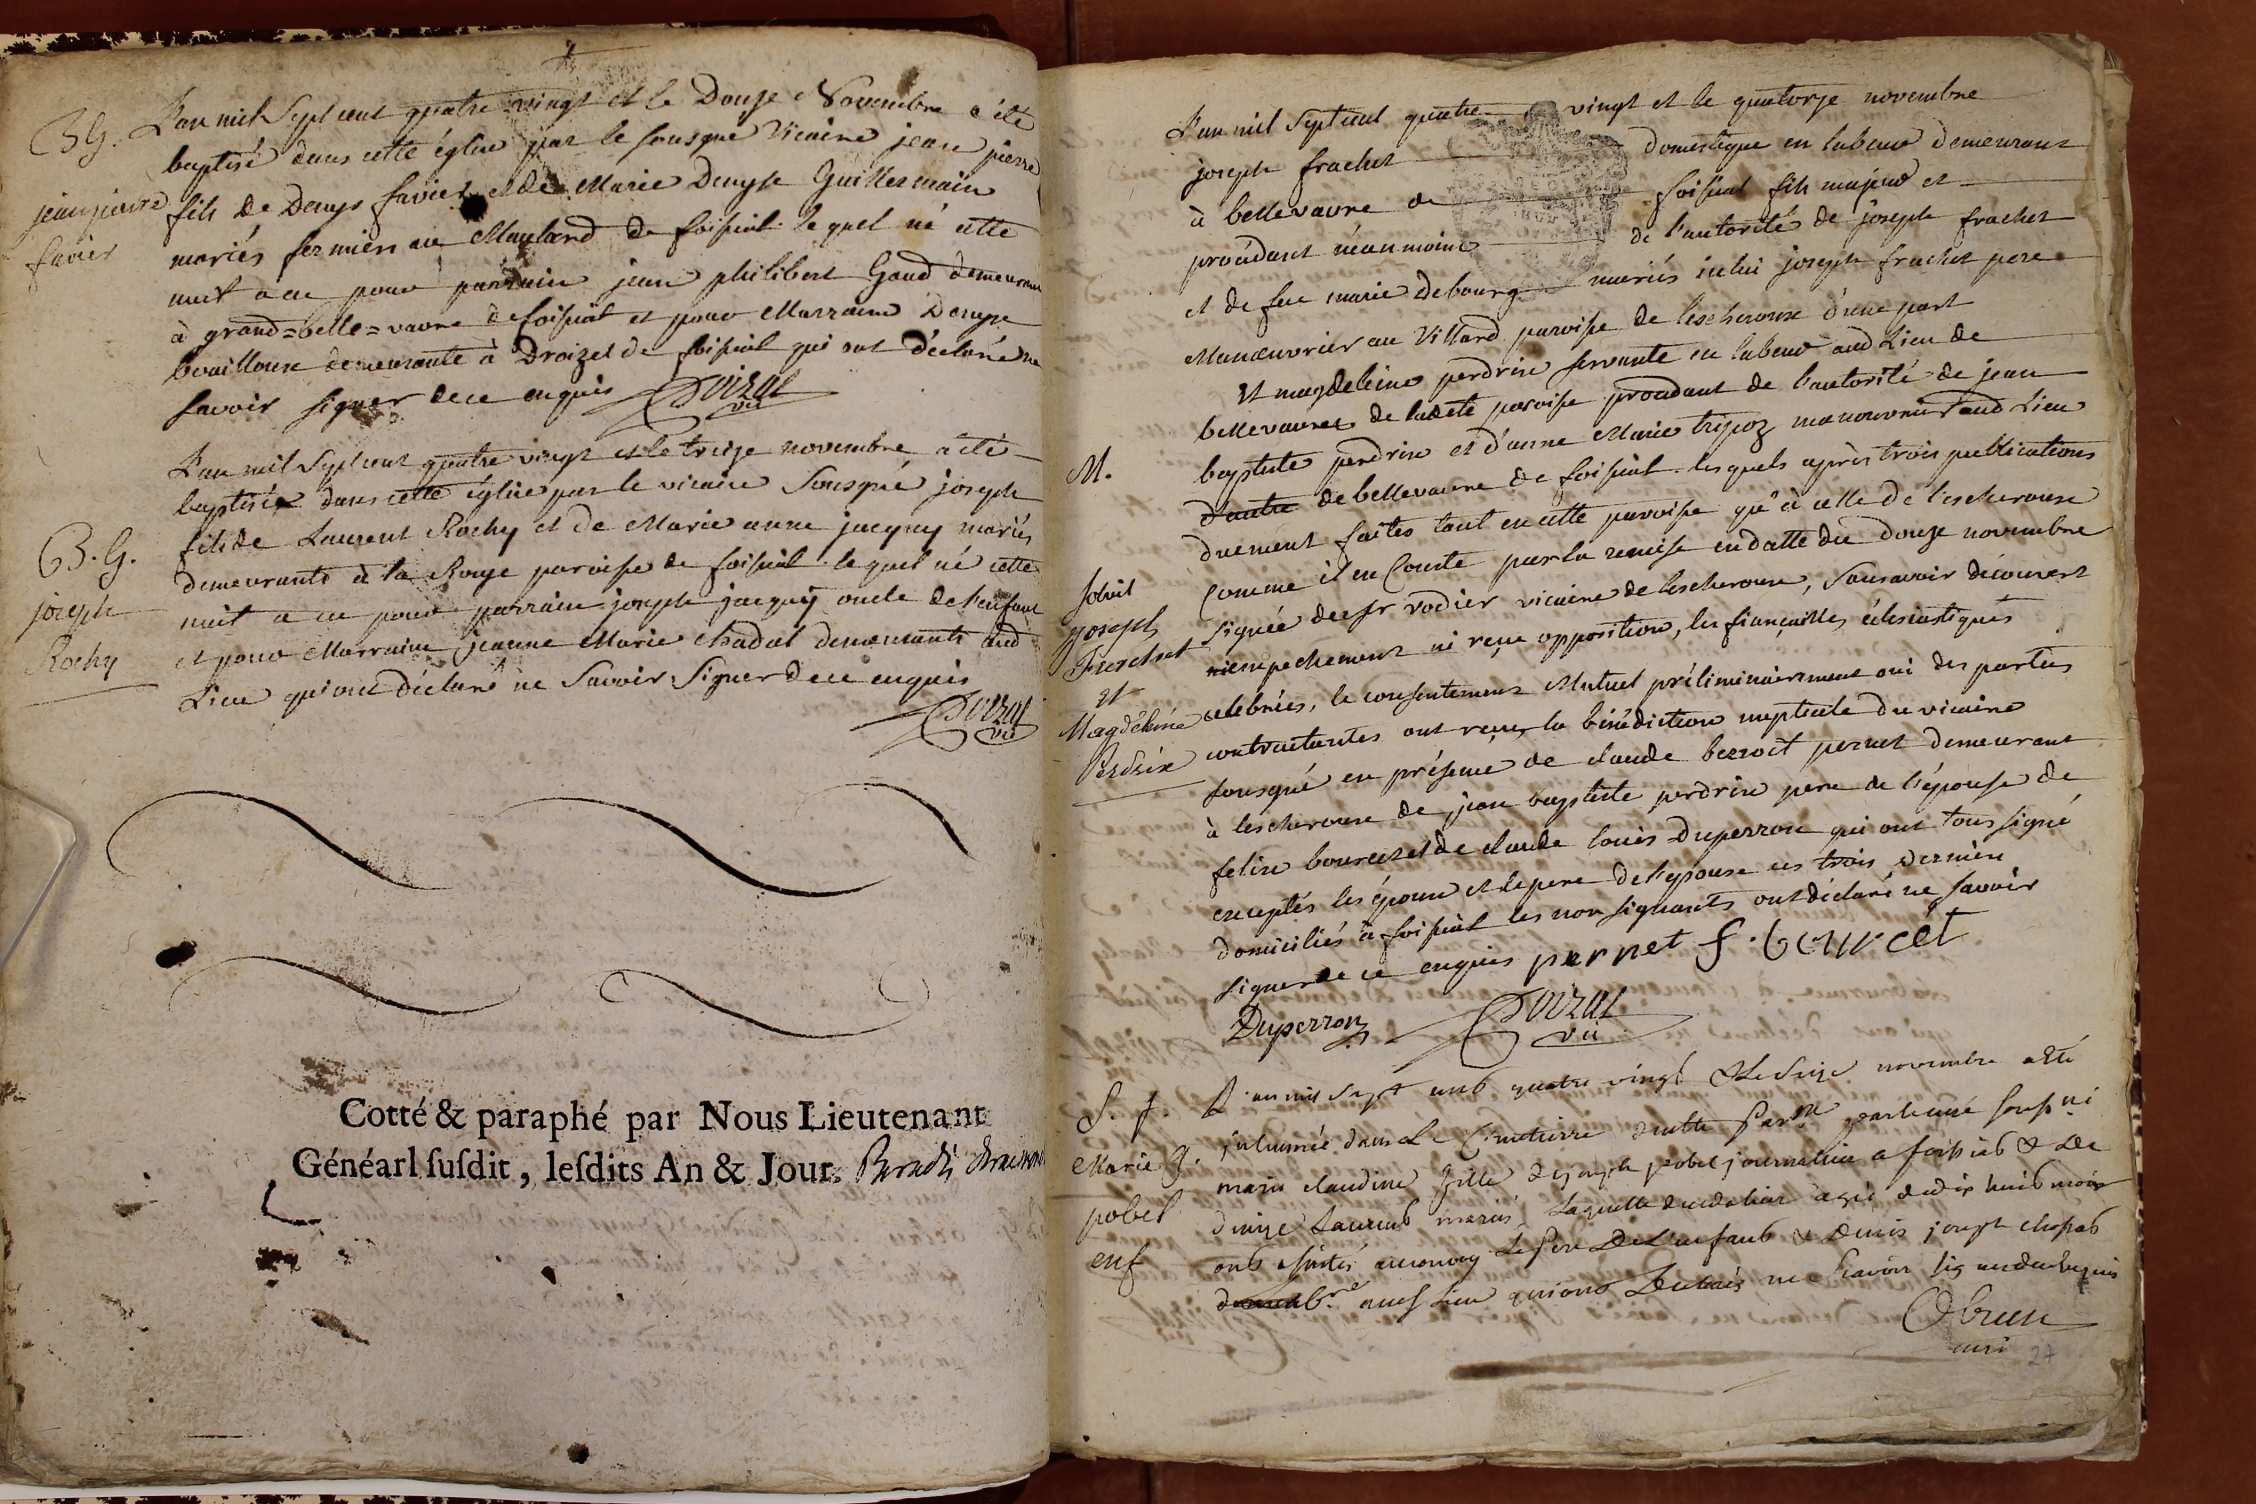 B G.
jean pierre
favier
L'an mil Sept cent quatre vingt et le Douze Novembre a été
baptisé dans cette église par le sousgné Vicaire jean pierre
fils de Denys favier et de Marie Denyse Guillermain
mariés fermiers au Mayland de foissiat lequel né cette
nuit a eu pour parrain jean philibert Gaud demeurant
à grand=belle=vavre de foissiat et pour Marraine Denyse
bouilloux demeurante à Droizet de foissiat qui ont déclaré ne
savoir signer de ce enquis Doizat
vic
B. G.
joseph
Rochy
L'an mil Sept cent quatre vingt et le treize novembre a été
baptisé dans cette église par le vicaire Sousgné joseph
fils de Laurent Rochy et de Marie anne jacquy mariés
demeurants à la Rouge paroisse de foissiat lequel né cette
nuit a eu pour parrain joseph jacquy oncle de l'enfant
et pour Marraine jeanne Marie chadat demeurants aud
Lieu qui ont déclaré ne Savoir Signer de ce enquis
Doizat
vic
Cotté & paraphé par Nous Lieutenant
Généarl susdit, lesdits An & Jour.
M.
Solvit
joseph
Frachet
et
Magdelaine
Perdrix
L'an mil Sept cent quatre vingt et le quatorze novembre
joseph frachet domestique en labeur demeurant
à bellevavre de foissiat fils majeur et
procédant néanmoins de l'autorité de joseph frachet
et de feue marie debourg mariés icelui joseph frachet pere
Manœuvrier au Villard paroisse de lescheroux d'une part
Et magdeleine perdrix servante en labeur aud Lieu de
bellevavre de ladite paroisse procédant de l'autorité de jean
baptiste perdrix et d'anne Marie tripoz manouvriers aud Lieu
d'autre de bellevavre de foissiat lesquels après trois publications
duement faites tant en cette paroisse qu'à celle de lescheroux
Comme il en Conste par la remise en datte du douze novembre
signée de sr rodier vicaire de lescheroux, Sans avoir découvert
n'empechement ni reçu opposition, les fiançailles éclesiastiques
celebrées, le consentement Mutuel préliminairement oui des parties
contractantes ont reçu la bénédiction nuptiale du vicaire
sousgné en présence de claude benoit pernet demeurant
à lescheroux de jean baptiste perdrix pere de l'épouse de
felix bourcet et de claude louis Duperron qui ont tous signé
exceptés les époux et le pere de l'epouse ces trois derniers
domiciliés à foissiat les non signants ont déclaré ne savoir
signer de ce enquis pernet f. bourcet
Duperron Doizat
vic
S. J.
Marie J.
pobel
enf
L'an mil sept cent quatre vingt & le Seize novembre a Eté
inhumée dans Le Cimetierre de cette Parse par le curé soussné
marie claudine fille de joseph pobel journalier a foissiat & de
denise Laurent mariés Laquelle decedée hier agée de dix huit mois
ont assistés au convoy Le Pere De L'enfant & Denis joseph chossat
aussi Lieu qui ont Declarés ne Scavoir sig
Obrun
curé
27